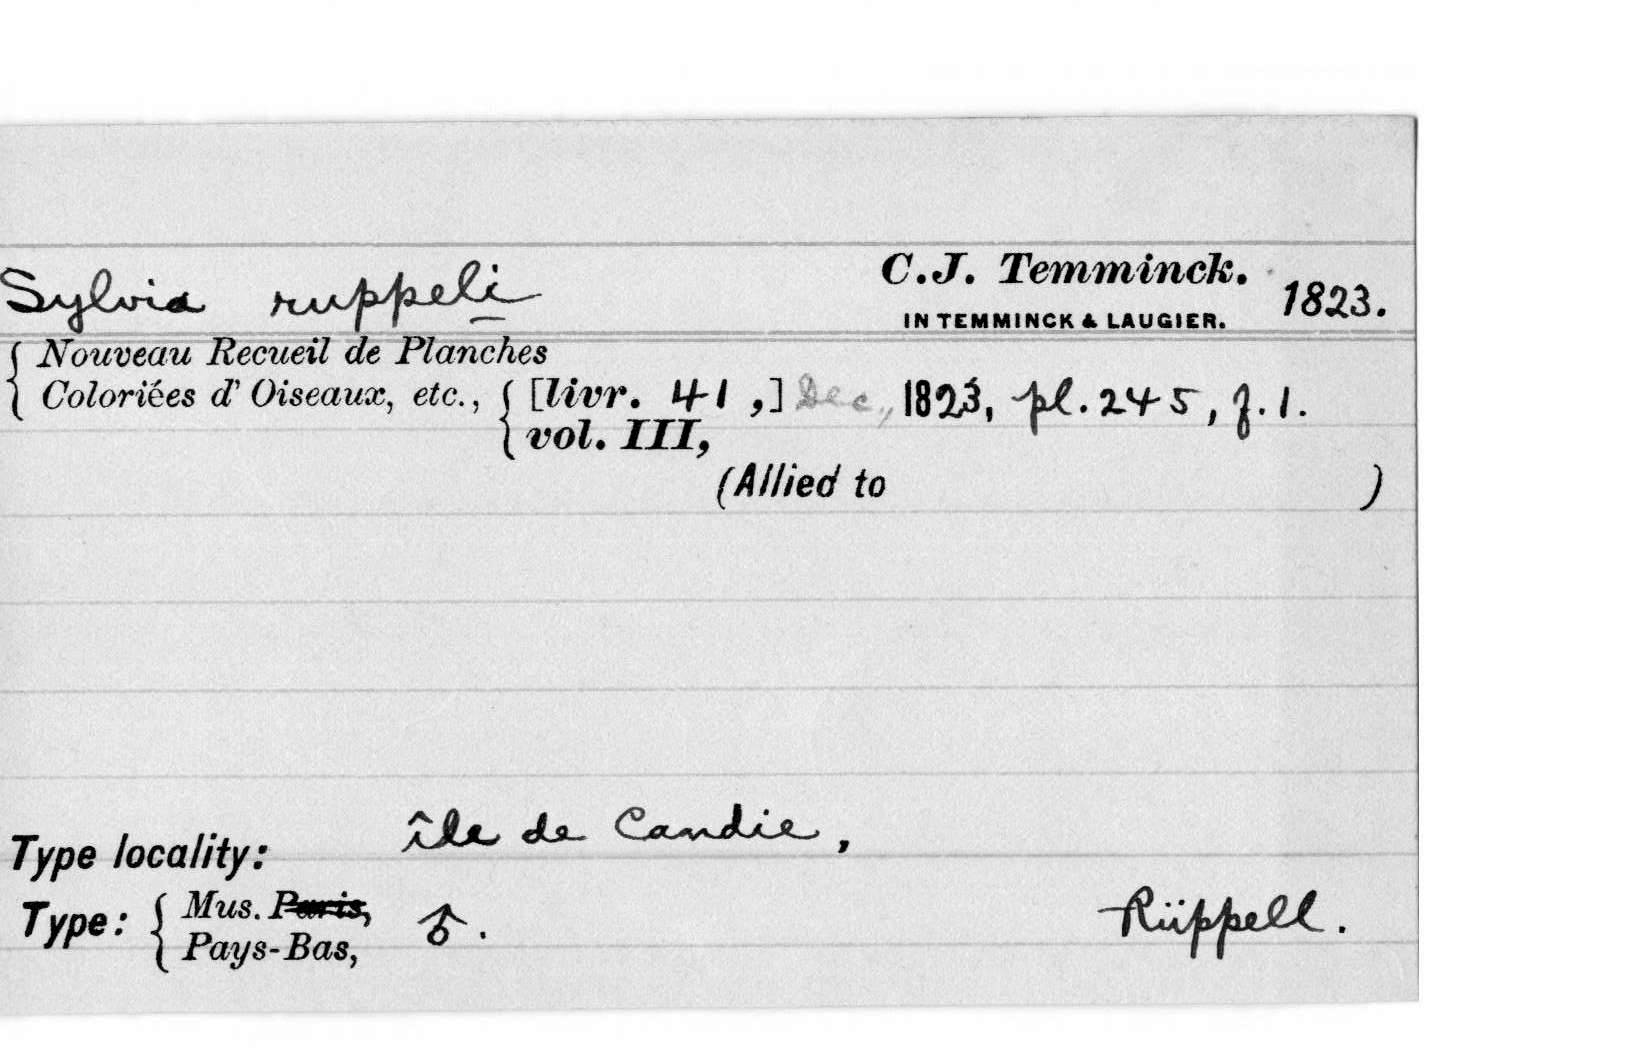 Sylvia ruppeli C.J. Temminck. 1823.
IN TEMMINCK & LAUGIER.
Nouveau Recueil de Planches
Coloriées d' Oiseaux, etc., [livr. 41,] Dec., 1823, pl. 245, f. 1.
vol. III,
(Allied to )
Type locality: île de Candie,
Type: Mus. Paris, ♂. Rüppell.
Pays-Bas,